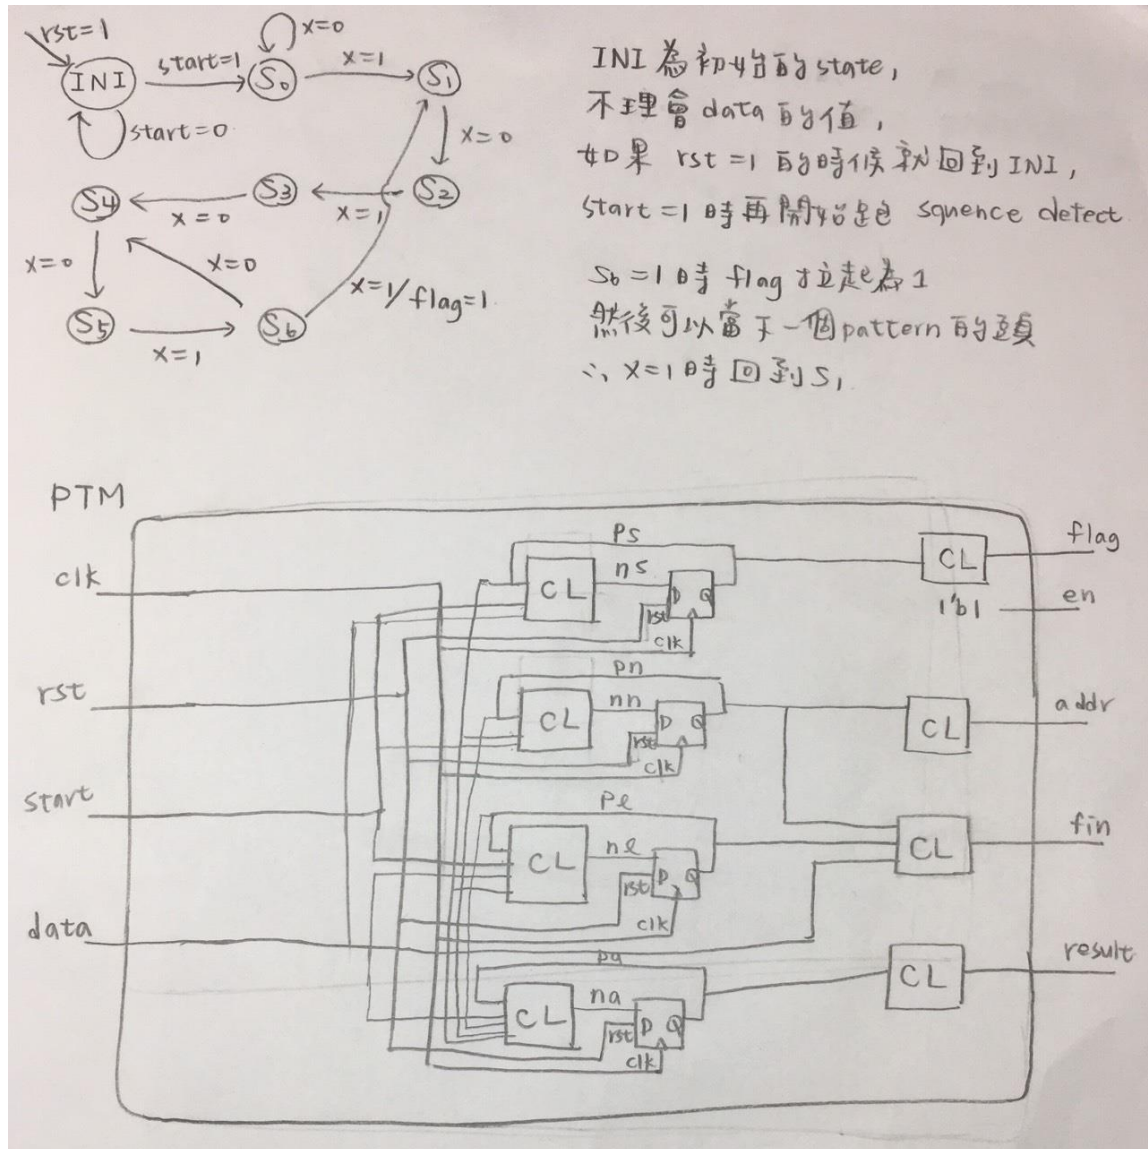 rst=1
x=0
INI
start=1
S0
x=1
S1
start=0
x=0
S4
x=0
S3
x=1
S2
x=0
x=0
S5
x=1
S6
x=1/flag=1
INI 為初始的state,
不理會data的值,
如果 rst=1 的時候就回到INI,
start=1時再開始跑 squence detect
S6=1時 flag 拉起為1
然後可以當下一個pattern的頭
∴ x=1時回到S1
PTM
clk
rst
start
data
ps
CL
ns
D
Q
rst
clk
pn
CL
nn
D
Q
rst
clk
pl
CL
nl
D
Q
rst
clk
pa
CL
na
D
Q
rst
clk
CL
flag
1'b1
en
CL
addr
CL
fin
CL
result